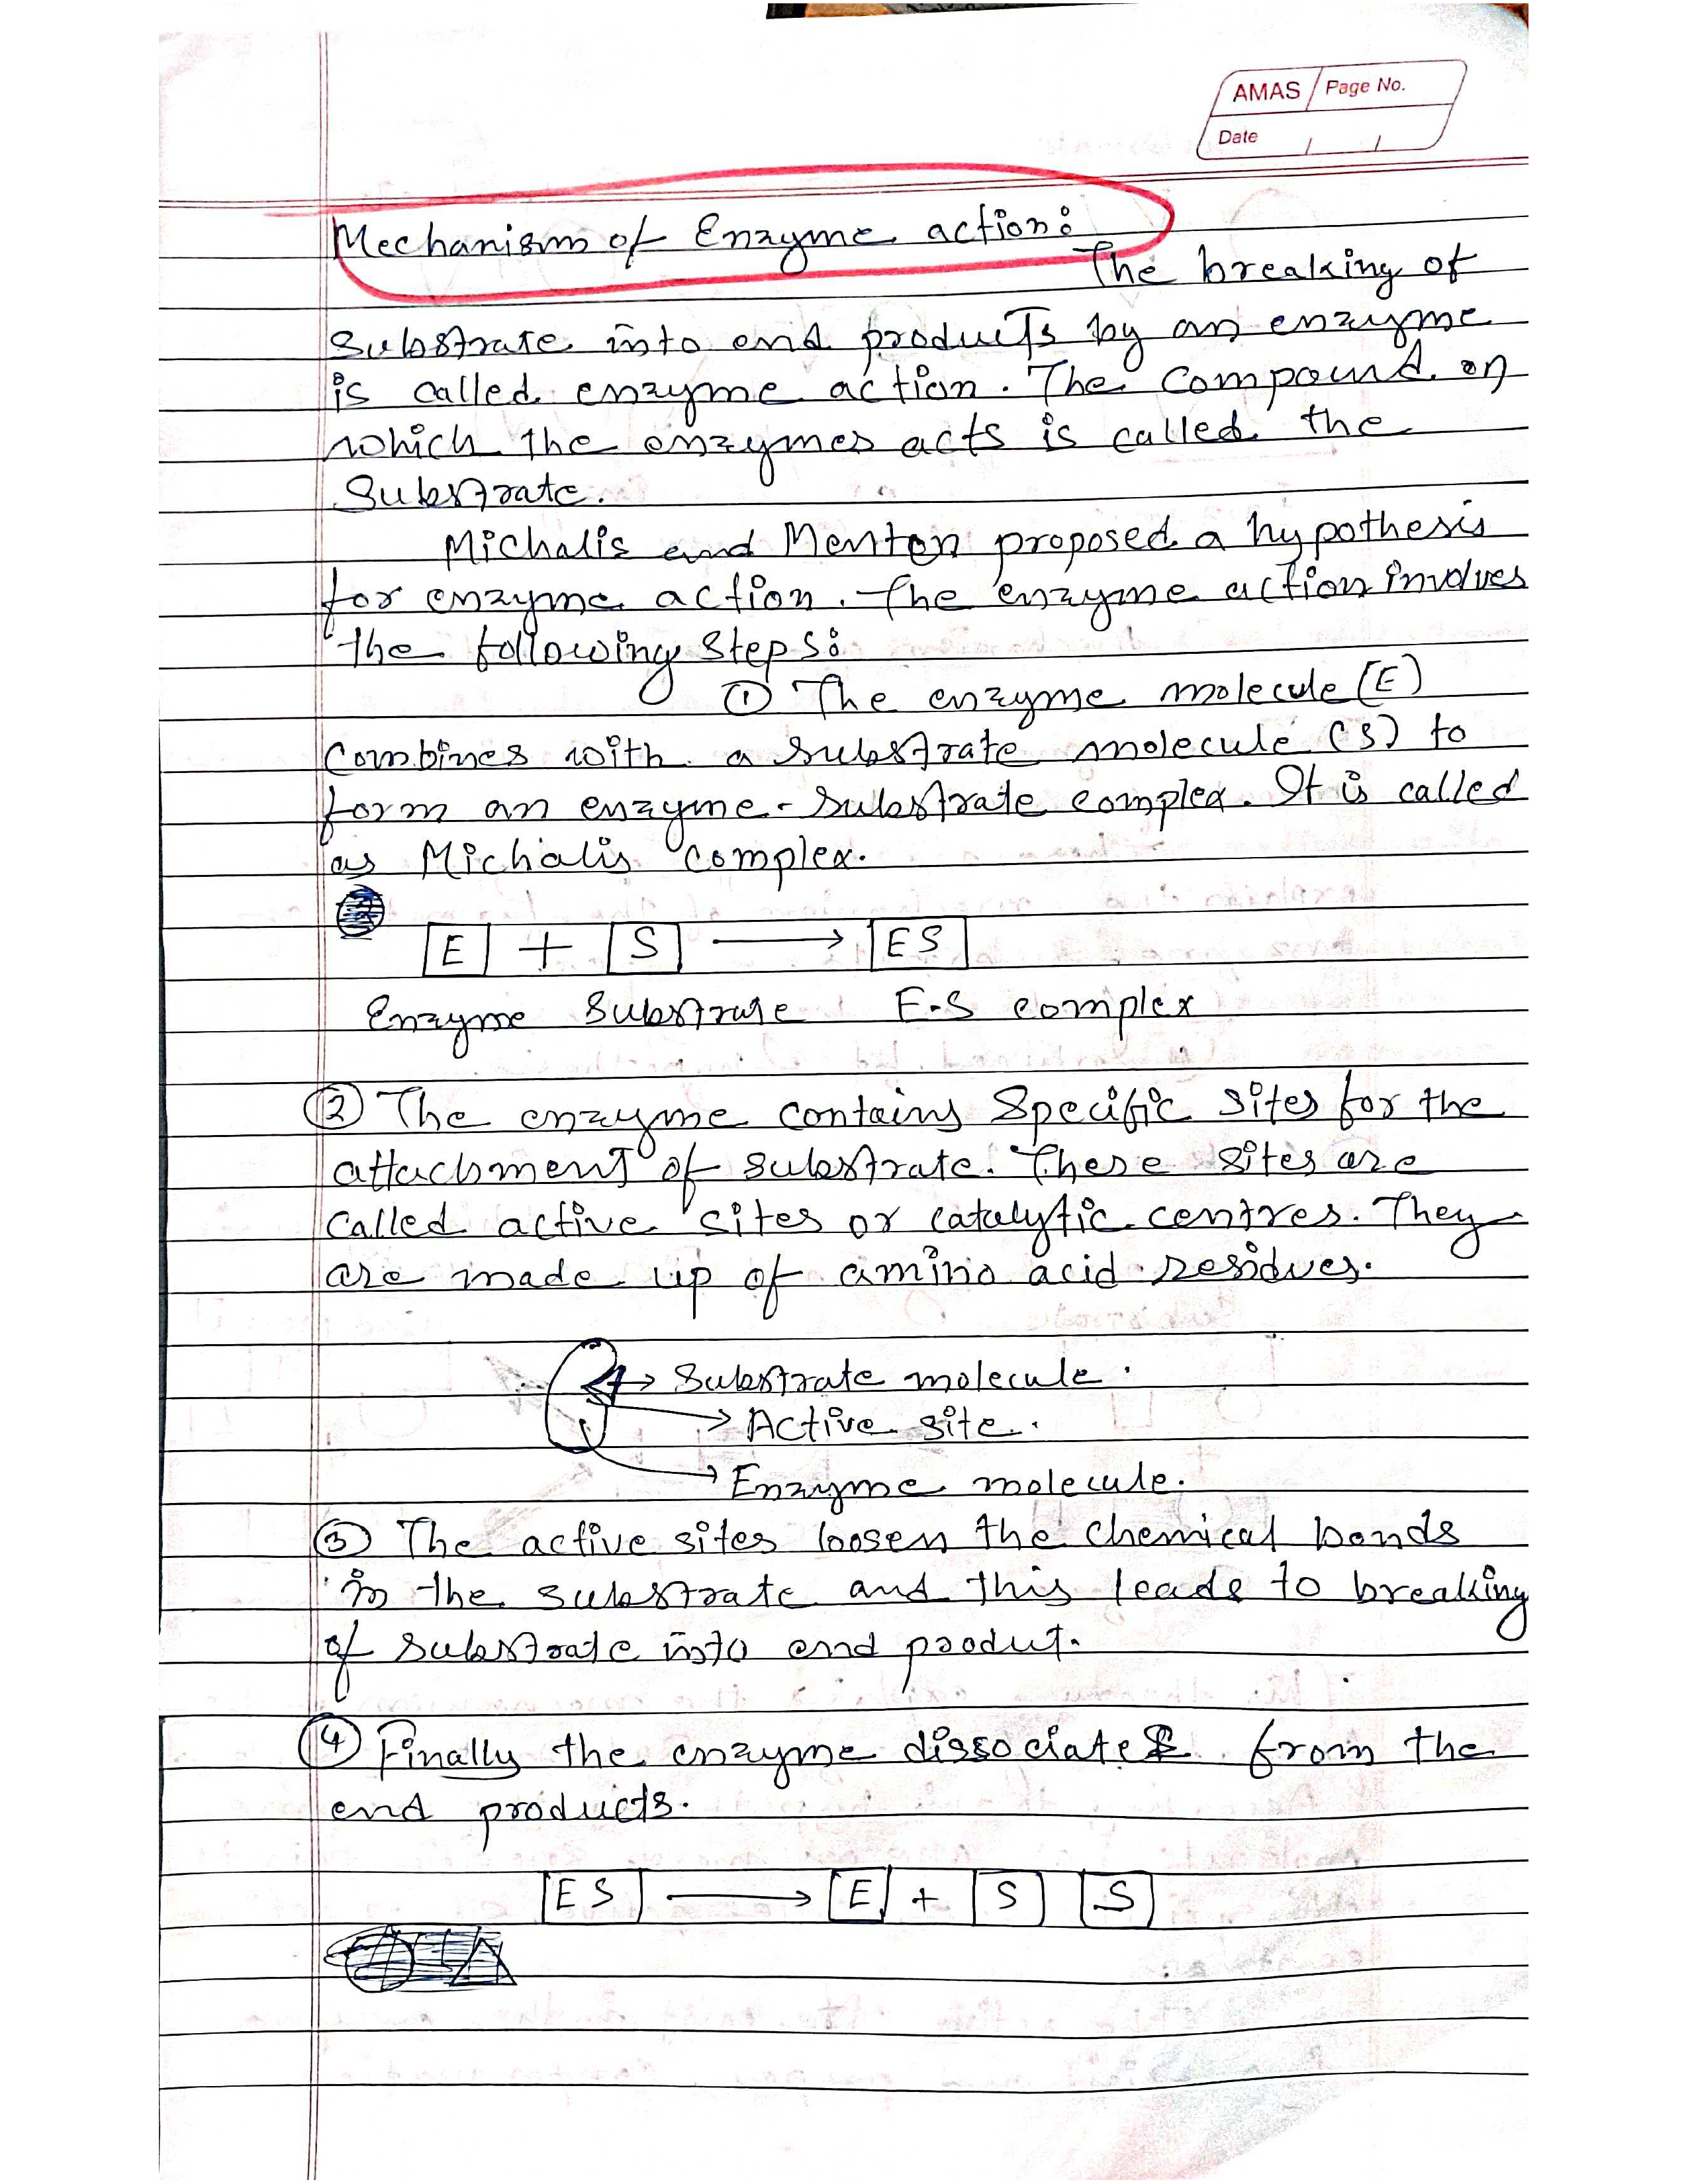 AMAS Page No.
Date / /
Mechanism of Enzyme action:
The breaking of
substrate into end products by an enzyme
is called enzyme action. The compound on
which the enzymes acts is called the
Substrate.
Michalis and Menton proposed a hypothesis
for enzyme action. The enzyme action involves
the following steps:
① The enzyme molecule (E)
Combines with a substrate molecule (S) to
form an enzyme-substrate complex. It is called
as Michalis complex.
E + S → ES
Enzyme Substrate E-S complex
② The enzyme contains Specific sites for the
attachment of substrate. These sites are
called active sites or catalytic centres. They
are made up of amino acid residues.
→ Substrate molecule.
→ Active site.
→ Enzyme molecule.
③ The active sites loosen the chemical bonds
in the substrate and this leads to breaking
of substrate into end produt.
④ Finally the enzyme dissociates from the
end products.
ES → E + S S